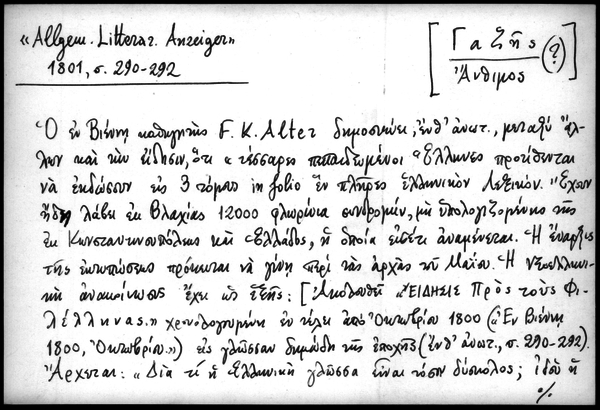 «Allgem. Litterar. Anzeiger»
1801, σ. 290-292
[Γαζῆς (?)]
Ἄνθιμος
Ὁ ἐν Βιέννῃ καθηγητὴς F. K. Alter δημοσιεύει, ἔνθ' ἀνωτ., μεταξὺ ἄλ-
λων καὶ τὴν εἴδησιν, ὅτι «τέσσαρες πεπαιδευμένοι Ἕλληνες προτίθενται
νὰ ἐκδώσουν εἰς 3 τόμους in folio ἓν πλῆρες ἑλληνικὸν Λεξικόν. Ἔχουν
ἤδη λάβει ἐκ Βλαχίας 12000 φλωρίνια συνδρομήν, μὴ ὑπολογιζομένης τῆς
ἐκ Κωνσταντινουπόλεως καὶ Ἑλλάδος, ἡ ὁποία εἰσέτι ἀναμένεται. Ἡ ἔναρξις
τῆς ἐκτυπώσεως πρόκειται νὰ γίνῃ περὶ τὰς ἀρχὰς τοῦ Μαΐου. Ἡ νεοελληνι-
κὴ ἀνακοίνωσις ἔχει ὡς ἑξῆς: [Ἀκολουθεῖ «ΕΙΔΗΣΙΣ Πρὸς τοὺς Φι-
λέλληνας.» χρονολογουμένη ἐν τέλει ἀπὸ Ὀκτωβρίου 1800 («Ἐν Βιέννῃ
1800, Ὀκτωβρίου.») εἰς γλῶσσαν δημώδη τῆς ἐποχῆς (ἔνθ' ἀνωτ., σ. 290-292).
Ἄρχεται: «Διὰ τί ἡ Ἑλληνικὴ γλῶσσα εἶναι τόσον δύσκολος; ἰδοὺ ἡ
%